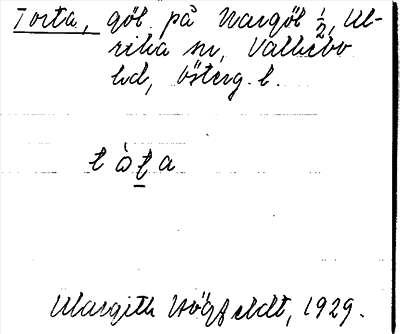 Torta, göl på Norrgöl ½, Ul-
rika sn, Vallebo
hd, Österg. l.
t ò ṯ a
Margith Högfeldt, 1929.